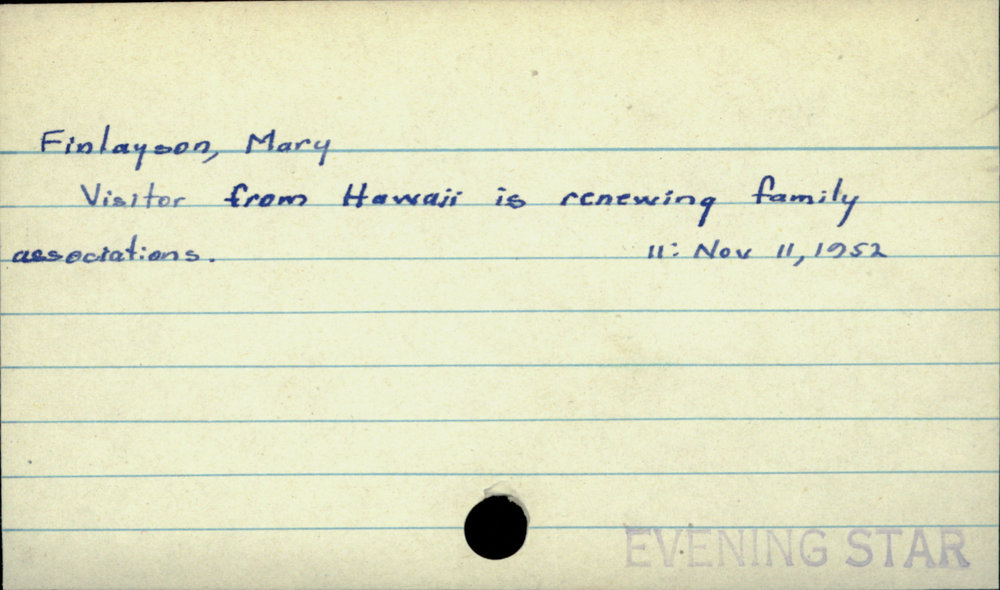 Finlayson, Mary
Visitor from Hawaii is renewing family
associations. 11: Nov 11, 1952
EVENING STAR